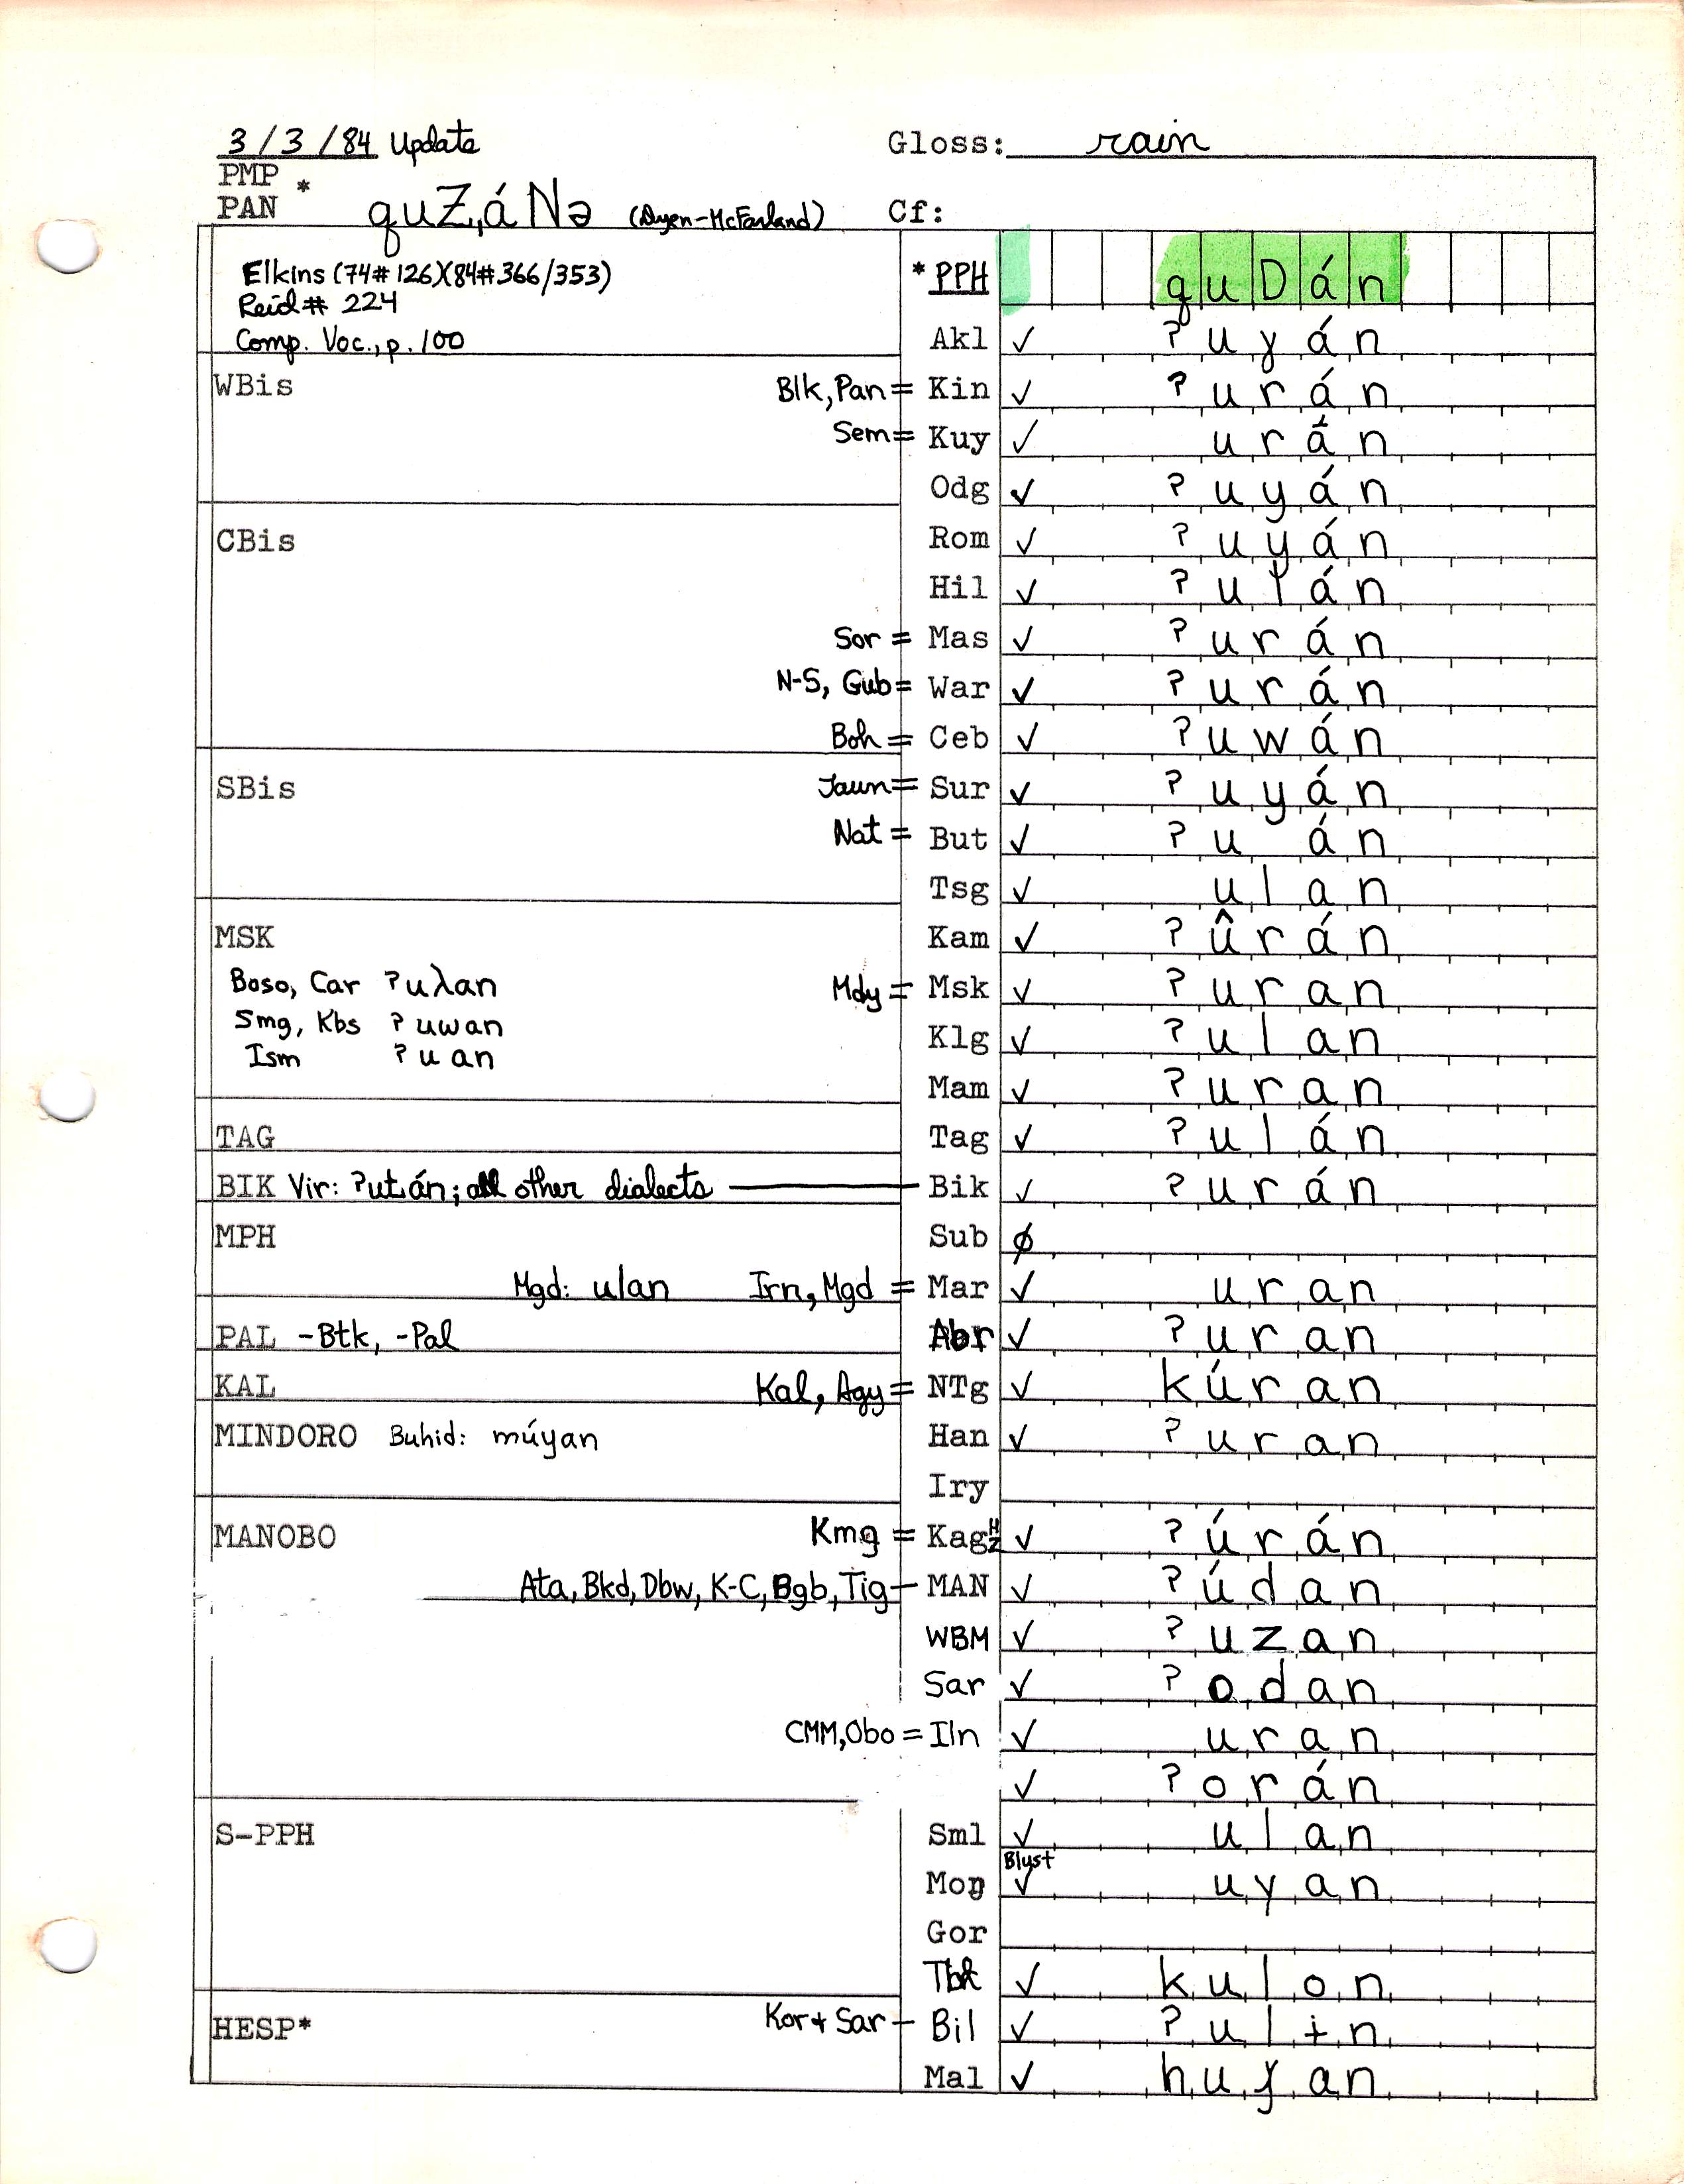 3/3/84 Update Gloss: rain
PMP
PAN * quZ,áNə (Dyen-McFarland) Cf:
Elkins (74#126)(84#366/353) *PPH quDán
Reid# 224
Comp. Voc., p. 100 Akl ✓ ʔuɣán
WBis Blk, Pan = Kin ✓ ʔurán
Sem = Kuy ✓ urán
Odg ✓ ʔuyán
CBis Rom ✓ ʔuyán
Hil ✓ ʔulán
Sor = Mas ✓ ʔurán
N-S, Gub = War ✓ ʔurán
Boh = Ceb ✓ ʔuwán
SBis Jaun = Sur ✓ ʔuyán
Nat = But ✓ ʔu án
Tsg ✓ ulan
MSK Kam ✓ ʔûrán
Boso, Car ʔuλan Mdy = Msk ✓ ʔuran
Smg, Kbs ʔuwan
Ism ʔuan Klg ✓ ʔulan
Mam ✓ ʔuran
TAG Tag ✓ ʔulán
BIK Vir: ʔut,án; all other dialects — Bik ✓ ʔurán
MPH Sub ∅
Mgd: ulan Irn, Mgd = Mar ✓ uran
PAL -Btk, -Pal Abr ✓ ʔuran
KAL Kal, Agy = NTg ✓ kúran
MINDORO Buhid: múyan Han ✓ ʔuran
Iry
MANOBO Kmg = Kag ✓ ʔúrán
Ata, Bkd, Dbw, K-C, Bgb, Tig — MAN ✓ ʔúdan
WBM ✓ ʔuzan
Sar ✓ ʔodan
CMM, Obo = Iln ✓ uran
✓ ʔorán
S-PPH Sml ✓ ulan
Blust
Mon ✓ uyan
Gor
Tbl ✓ kulon
HESP* Kor + Sar — Bil ✓ ʔulɨn
Mal ✓ huǰan